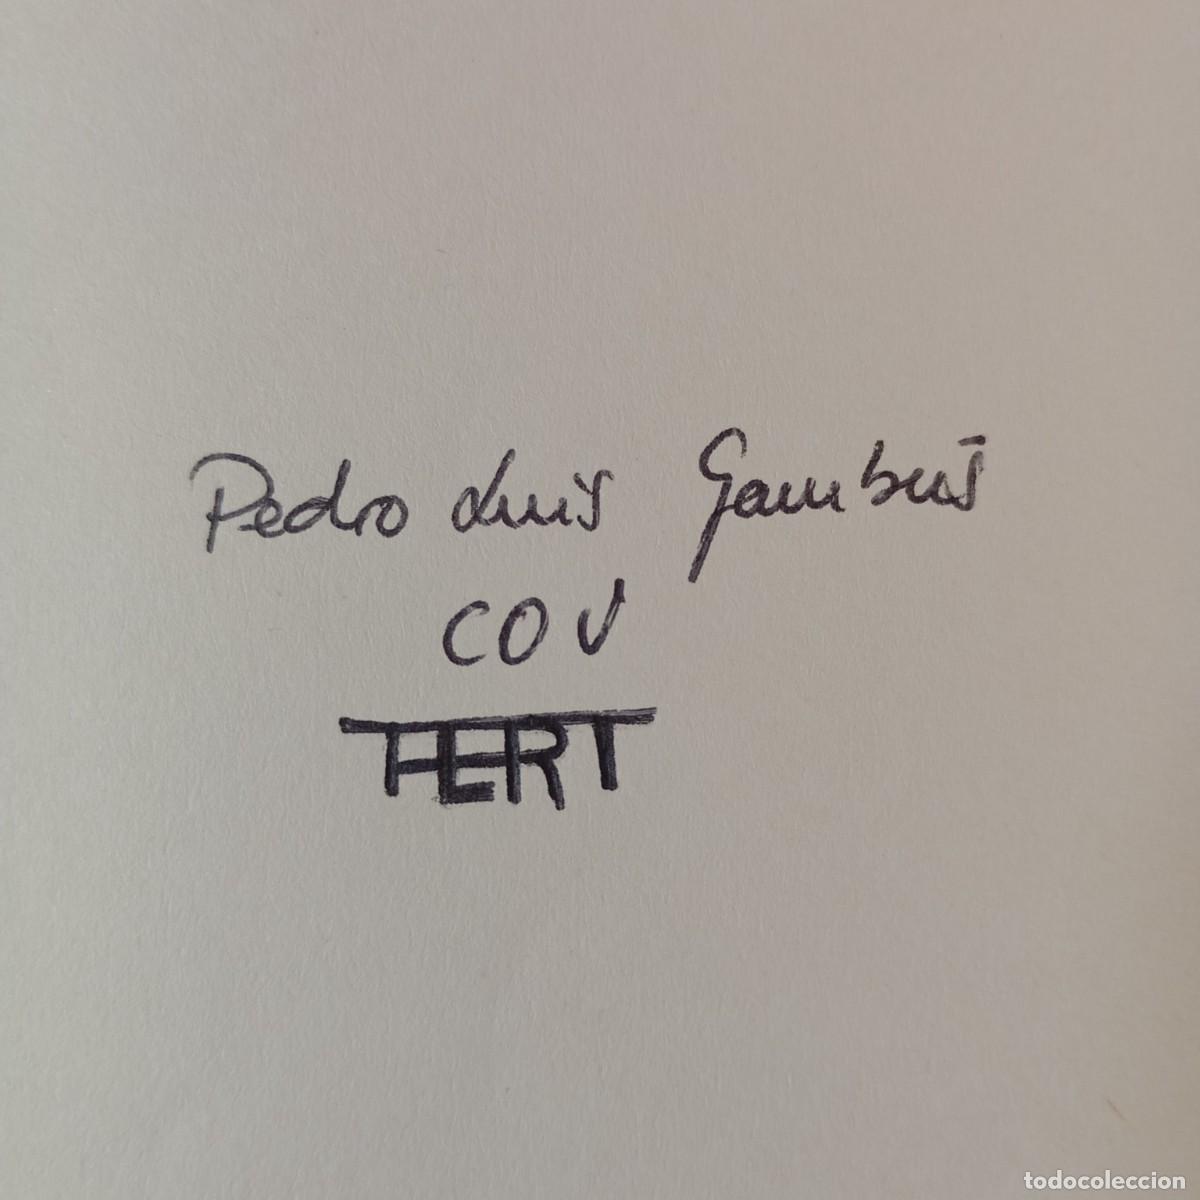 Pedro Luis Gambús
COU
FERT
todocoleccion